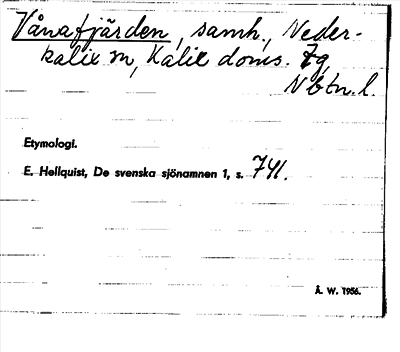 Vånafjärden, samh., Neder-
kalix sn, Kalix doms. tg,
Nbtn. l.
Etymologi.
E. Hellquist, De svenska sjönamnen 1, s. 741.
Å. W. 1956.